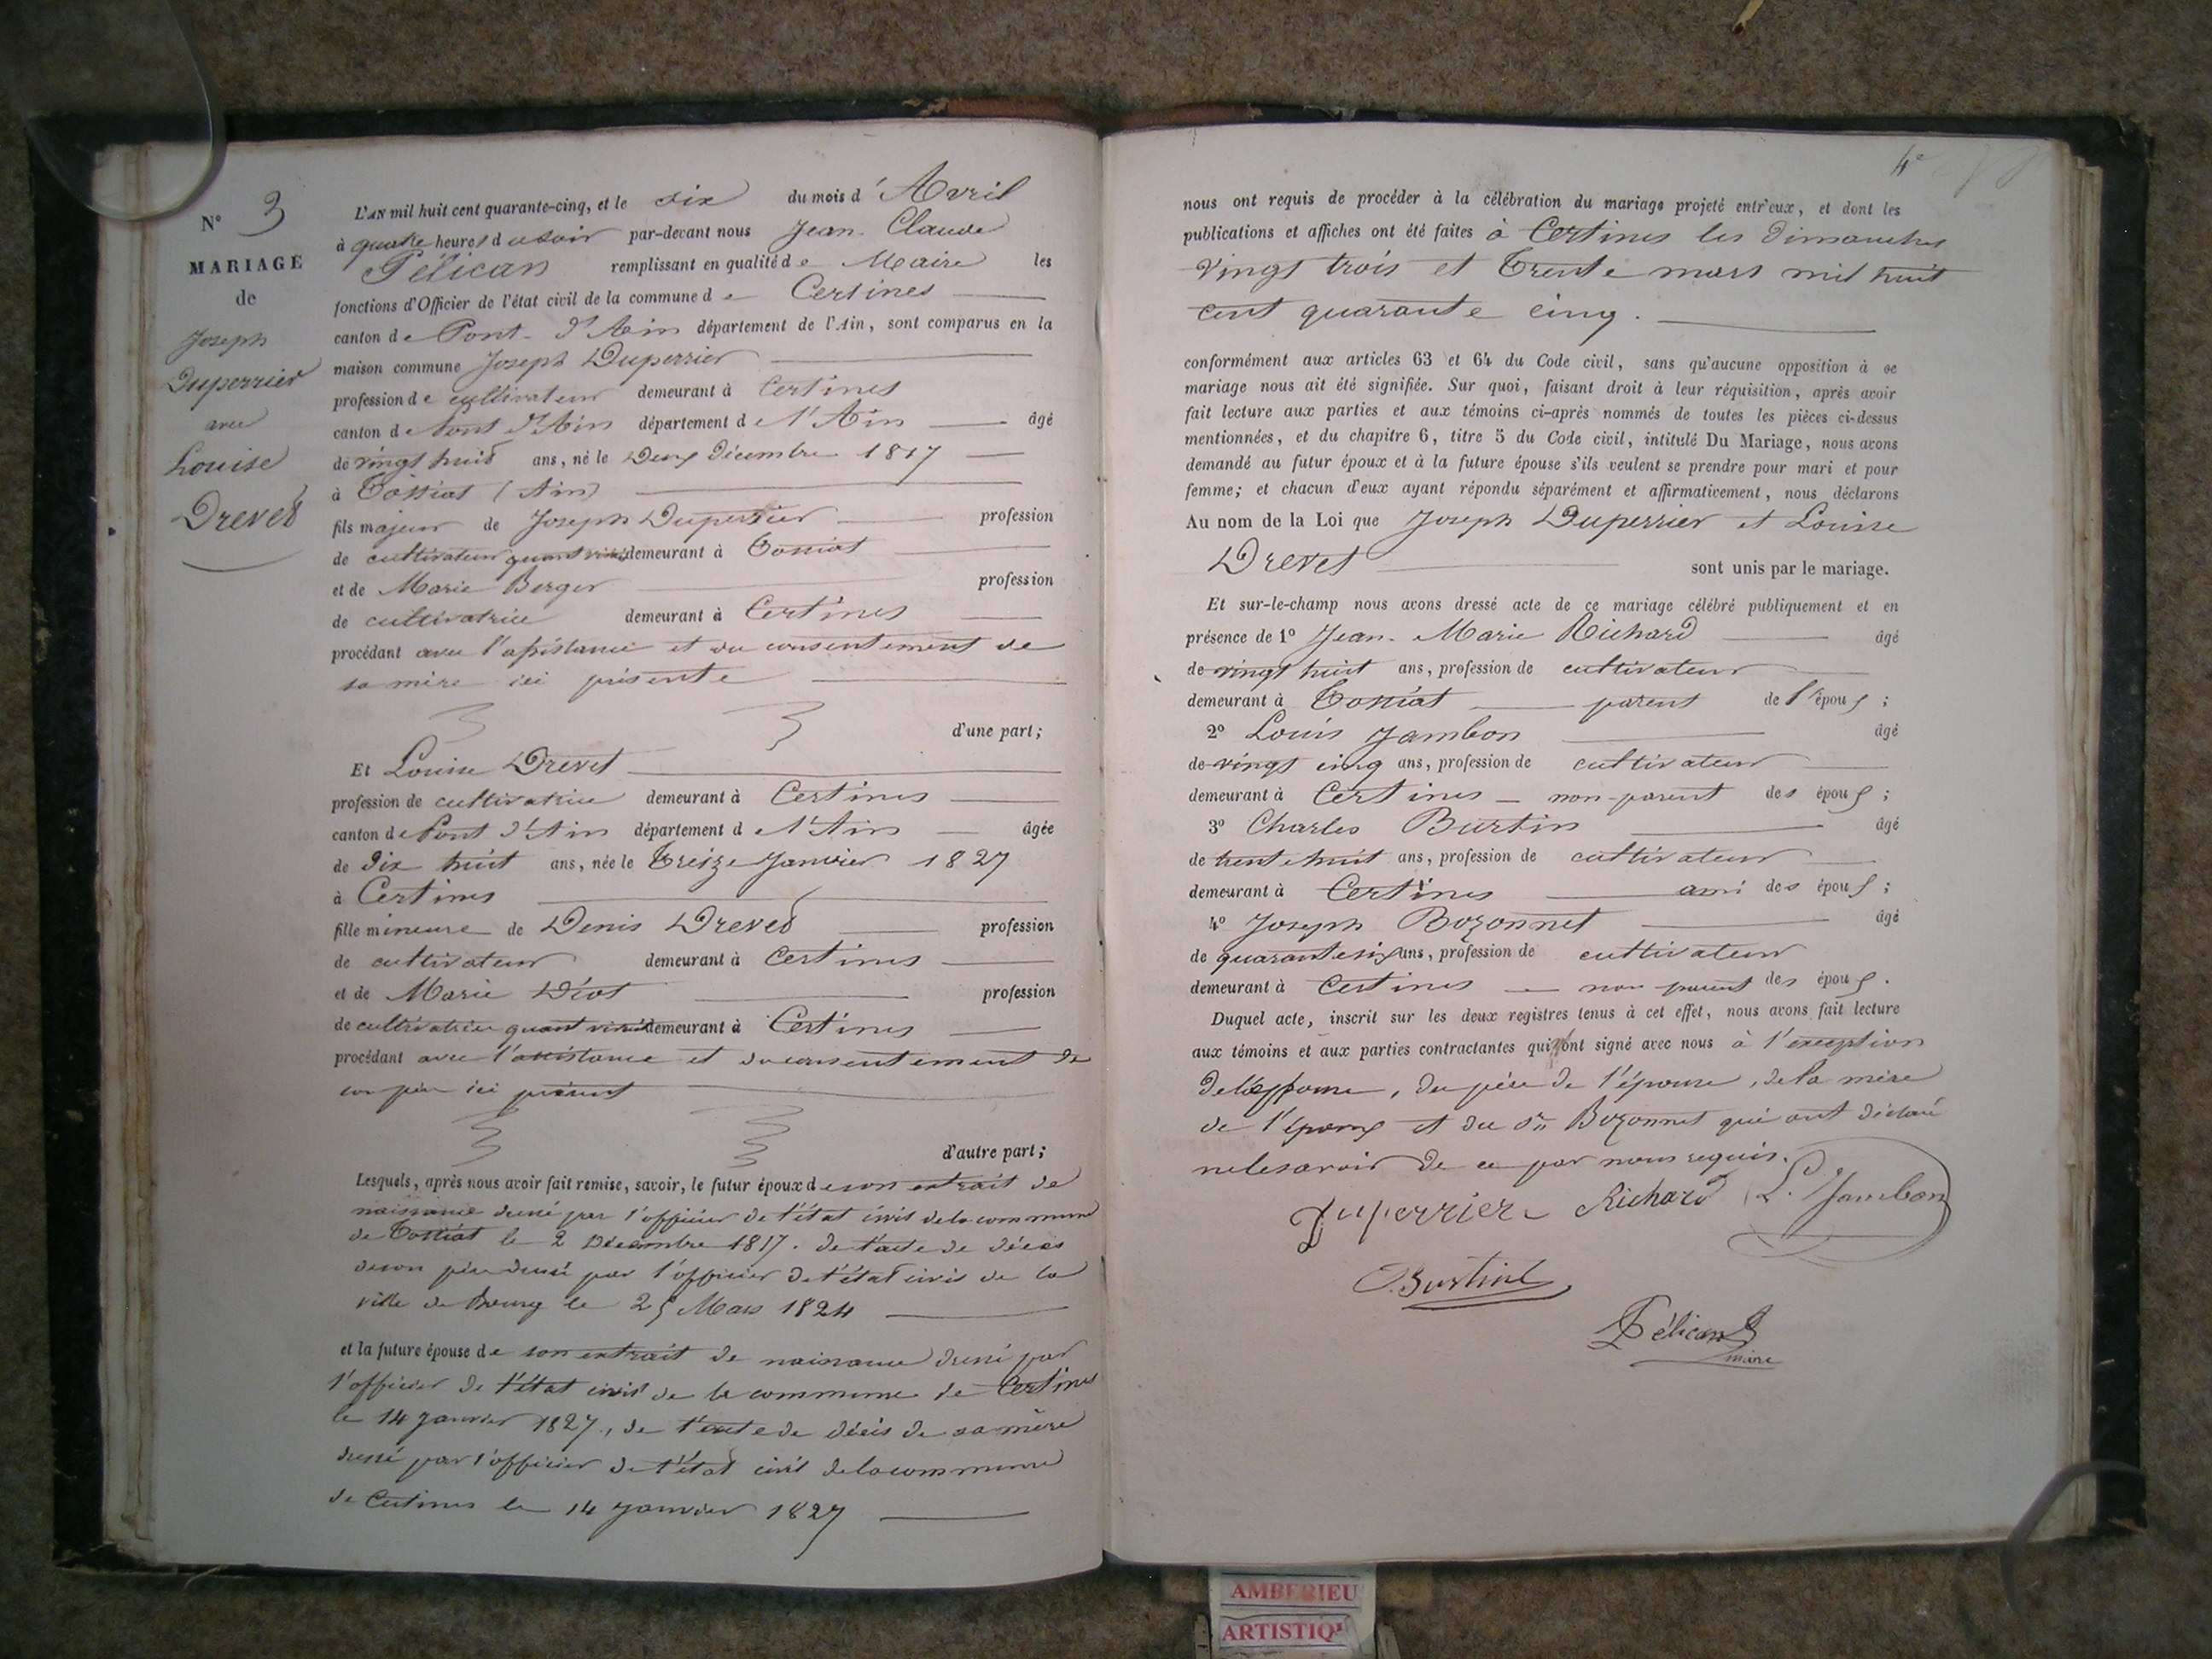 N° 3
MARIAGE
de
Joseph
Duperrier
avec
Louise
Drevet
L'AN mil huit cent quarante-cinq, et le dix du mois d'Avril
à quatre heures du soir par-devant nous Jean Claude
Pélican remplissant en qualité de Maire les
fonctions d'Officier de l'état civil de la commune de Certines
canton de Pont-d'Ain département de l'Ain, sont comparus en la
maison commune Joseph Duperrier
profession de cultivateur demeurant à Certines
canton de Pont d'Ain département de l'Ain âgé
de vingt huit ans, né le Deux Décembre 1817
à Tossiat (Ain)
fils majeur de Joseph Duperrier profession
de cultivateur quant vivait demeurant à Tossiat
et de Marie Berger profession
de cultivatrice demeurant à Certines
procédant avec l'assistance et du consentement de
sa mère ici présente
d'une part;
Et Louise Drevet
profession de cultivatrice demeurant à Certines
canton de Pont d'Ain département de l'Ain âgée
de dix huit ans, née le Treize Janvier 1827
à Certines
fille mineure de Denis Drevet profession
de cultivateur demeurant à Certines
et de Marie Déot profession
de cultivatrice quant vivait demeurant à Certines
procédant avec l'assistance et du consentement de
son père ici présent
d'autre part;
Lesquels, après nous avoir fait remise, savoir, le futur époux de son extrait de
naissance dressé par l'officier de l'état civil de la commune
de Tossiat le 2 Décembre 1817. de l'acte de décès
de son père dressé par l'officier de l'état civil de la
ville de Bourg le 25 Mars 1824
et la future épouse de son extrait de naissance dressé par
l'officier de l'état civil de la commune de Certines
le 14 janvier 1827, de l'acte de décès de sa mère
dressé par l'officier de l'état civil de la commune
de Certines le 14 janvier 1827
4e
nous ont requis de procéder à la célébration du mariage projeté entr'eux, et dont les
publications et affiches ont été faites à Certines les Dimanches
vingt trois et trente mars mil huit
cent quarante cinq.
conformément aux articles 63 et 64 du Code civil, sans qu'aucune opposition à ce
mariage nous ait été signifiée. Sur quoi, faisant droit à leur réquisition, après avoir
fait lecture aux parties et aux témoins ci-après nommés de toutes les pièces ci-dessus
mentionnées, et du chapitre 6, titre 5 du Code civil, intitulé Du Mariage, nous avons
demandé au futur époux et à la future épouse s'ils veulent se prendre pour mari et pour
femme; et chacun d'eux ayant répondu séparément et affirmativement, nous déclarons
Au nom de la Loi que Joseph Duperrier et Louise
Drevet sont unis par le mariage.
Et sur-le-champ nous avons dressé acte de ce mariage célébré publiquement et en
présence de 1° Jean-Marie Richard âgé
de vingt huit ans, profession de cultivateur
demeurant à Tossiat parent de l'époux;
2° Louis Jambon âgé
de vingt cinq ans, profession de cultivateur
demeurant à Certines non-parent des époux;
3° Charles Burtin âgé
de trente huit ans, profession de cultivateur
demeurant à Certines ami des époux;
4° Joseph Bozonnet âgé
de quarante six ans, profession de cultivateur
demeurant à Certines non parent des époux.
Duquel acte, inscrit sur les deux registres tenus à cet effet, nous avons fait lecture
aux témoins et aux parties contractantes qui ont signé avec nous à l'exception
de l'épouse, du père de l'épouse, de la mère
de l'époux et du sr Bozonnet qui ont déclaré
ne le savoir de ce par nous requis.
Duperrier Richard L. Jambon
C. Burtin
Pélican
maire
AMBERIEU
ARTISTIQ